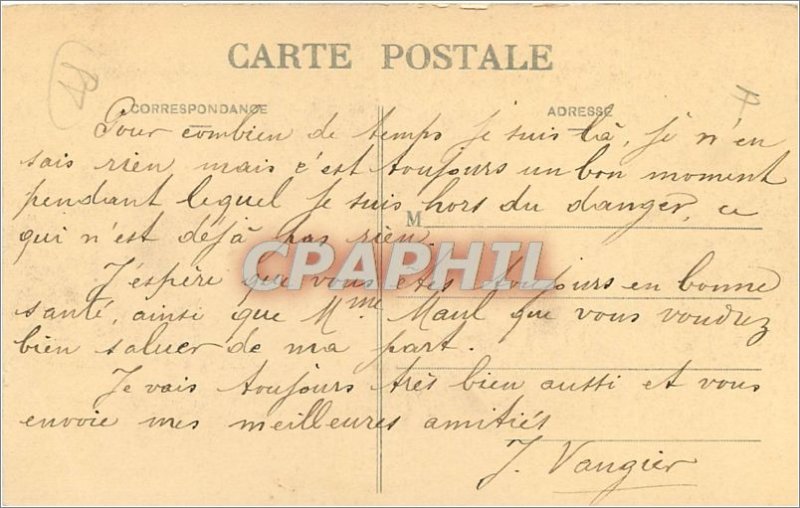 CARTE POSTALE
CORRESPONDANCE
ADRESSE
Pour combien de temps je suis là, je n'en
sais rien mais c'est toujours un bon moment
pendant lequel je suis hors du danger, ce
M
qui n'est déjà pas rien.
CPAPHIL
J'espère que vous êtes toujours en bonne
santé, ainsi que Mme Maul que vous voudrez
bien saluer de ma part.
Je vais toujours très bien aussi et vous
envoie mes meilleures amitiés
J. Vangier